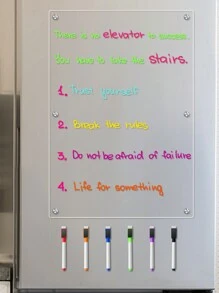 There is no elevator to success.
You have to take the stairs.
1. Trust yourself
2. Break the rules
3. Do not be afraid of failure
4. Life for something